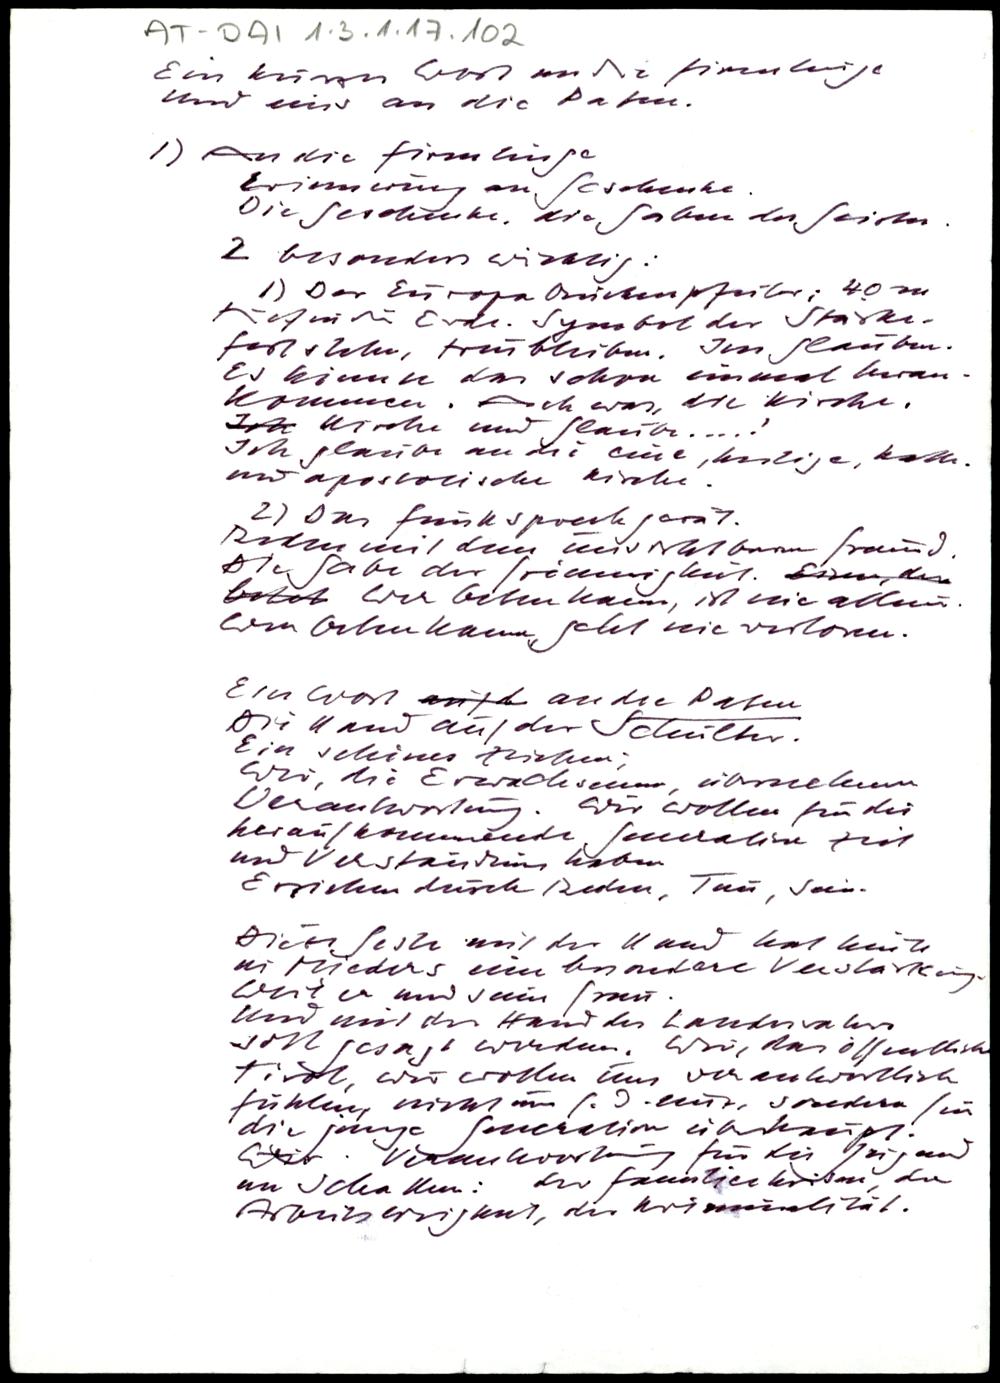 AT-DAI 1.3.1.17.102
Ein kurzes Wort an die Firmlinge
Und eins an die Paten.
1) An die Firmlinge
Erinnerung an Geschenke.
Die Geschenke, die Gaben des Geistes.
2 besonders wichtig:
1) Der Europabrückenpfeiler; 40 m
tief in die Erde. Symbol der Stärke.
fest stehn, treu bleiben. Im Glauben.
Es könnte das schon einmal heran-
kommen. Ach was, die Kirche.
Ich Kirche und Glaube.....!
Ich glaube an die eine, heilige, kath.
und apostolische Kirche.
2) Das Funksprechgerät.
Reden mit dem unsichtbaren Freund.
Die Gabe der Frömmigkeit.
betet Wer beten kann, ist nie allein.
Wer beten kann, geht nie verloren.
Ein Wort an die Paten
Die Hand auf der Schulter.
Ein schönes Zeichen;
Wir, die Erwachsenen, übernehmen
Verantwortung. Wir wollen für die
heraufkommende Generation Zeit
und Verständnis haben
Erziehen durch Reden, Tun, Sein.
Diese Geste mit der Hand hat heute
in Mieders eine besondere Verstärkung.
Weil er und seine Frau.
Und mit der Hand des Landesvaters
soll gesagt werden. Wir, das öffentliche
Tirol, wir wollen uns verantwortlich
fühlen, nicht nur für einen, sondern für
die junge Generation überhaupt.
Verantwortung für die Jugend
im Schatten: der Familienkrisen, der
Arbeitslosigkeit, der Kriminalität.